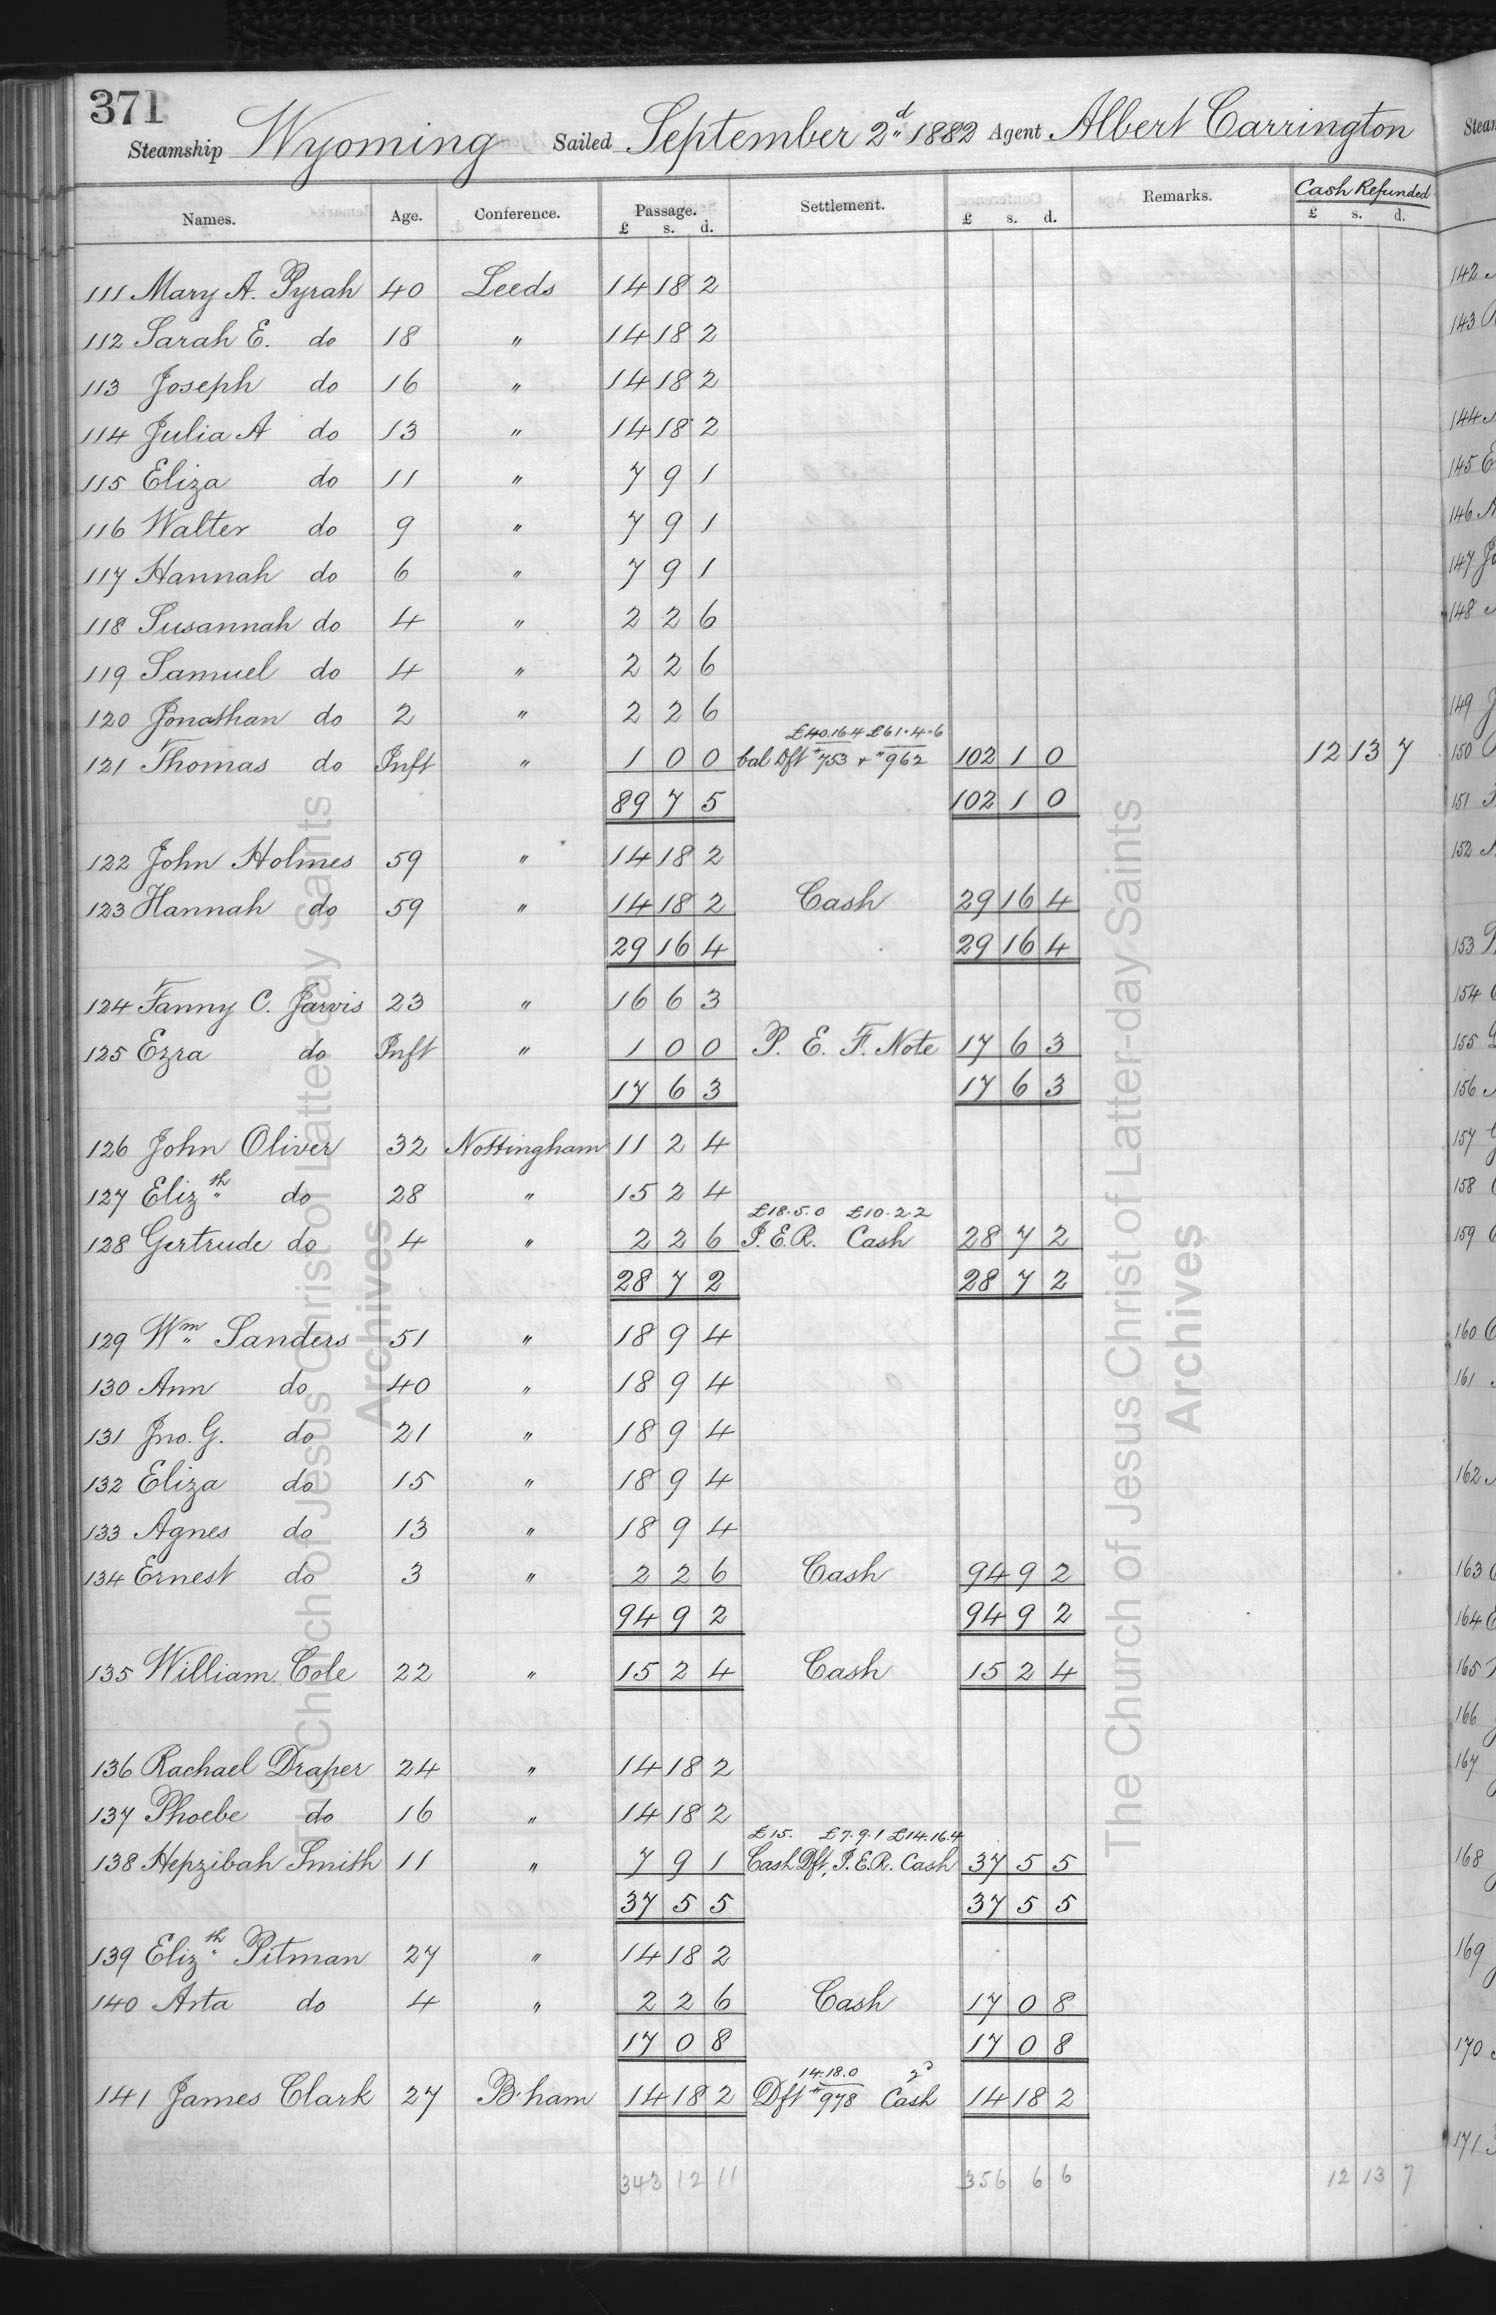 371
Steamship Wyoming Sailed September 2d 1882 Agent Albert Carrington
Names. Age. Conference. Passage. Settlement. Remarks. Cash Refunded
£ s. d. £ s. d. £ s. d.
111 Mary A. Pyrah 40 Leeds 14 18 2
112 Sarah E. do 18 " 14 18 2
113 Joseph do 16 " 14 18 2
114 Julia A do 13 " 14 18 2
115 Eliza do 11 " 7 9 1
116 Walter do 9 " 7 9 1
117 Hannah do 6 " 7 9 1
118 Susannah do 4 " 2 2 6
119 Samuel do 4 " 2 2 6
120 Jonathan do 2 " 2 2 6
£40.16.4 £61.4.6
121 Thomas do Inft " 1 0 0 bal Dft #753 + #962 102 1 0 12 13 7
89 7 5 102 1 0
122 John Holmes 59 " 14 18 2
123 Hannah do 59 " 14 18 2 Cash 29 16 4
29 16 4 29 16 4
124 Fanny C. Jarvis 23 " 16 6 3
125 Ezra do Inft " 1 0 0 P. E. F. Note 17 6 3
17 6 3 17 6 3
126 John Oliver 32 Nottingham 11 2 4
127 Elizth do 28 " 15 2 4
£18.5.0 £10.2.2
128 Gertrude do 4 " 2 2 6 I.E.R. Cash 28 7 2
28 7 2 28 7 2
129 Wm Sanders 51 " 18 9 4
130 Ann do 40 " 18 9 4
131 Jno. G. do 21 " 18 9 4
132 Eliza do 15 " 18 9 4
133 Agnes do 13 " 18 9 4
134 Ernest do 3 " 2 2 6 Cash 94 9 2
94 9 2 94 9 2
135 William Cole 22 " 15 2 4 Cash 15 2 4
136 Rachael Draper 24 " 14 18 2
137 Phoebe do 16 " 14 18 2
£15. £7.9.1 £14.16.4
138 Hepzibah Smith 11 " 7 9 1 Cash Dft, I.E.R. Cash 37 5 5
37 5 5 37 5 5
139 Elizth Pitman 27 " 14 18 2
140 Arta do 4 " 2 2 6 Cash 17 0 8
17 0 8 17 0 8
14.18.0 2d
141 James Clark 27 B'ham 14 18 2 Dft #978 Cash 14 18 2
343 12 11 356 6 6 12 13 7
The Church of Jesus Christ of Latter-day Saints
Archives
The Church of Jesus Christ of Latter-day Saints
Archives
Steam
142
143
144
145
146
147
148
149
150
151
152
153
154
155
156
157
158
159
160
161
162
163
164
165
166
167
168
169
170
171